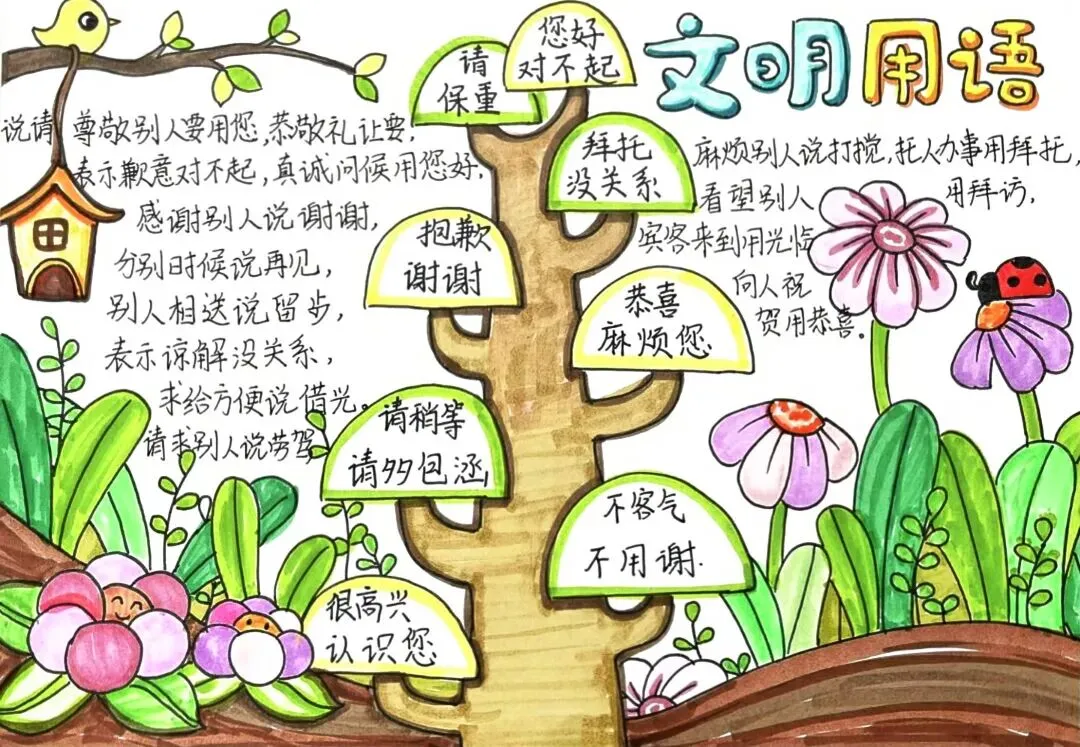 文明用语
说请 尊敬别人要用您,恭敬礼让要,
表示歉意对不起,真诚问候用您好.
感谢别人说谢谢,
分别时候说再见,
别人相送说留步,
表示谅解没关系,
求给方便说借光。
请求别人说劳驾
请
保重
您好
对不起
拜托
没关系
抱歉
谢谢
恭喜
麻烦您.
请稍等
请多包涵
不客气
不用谢.
很高兴
认识您
麻烦别人说打搅,托人办事用拜托,
看望别人 用拜访,
宾客来到用光临
向人祝
贺用恭喜。